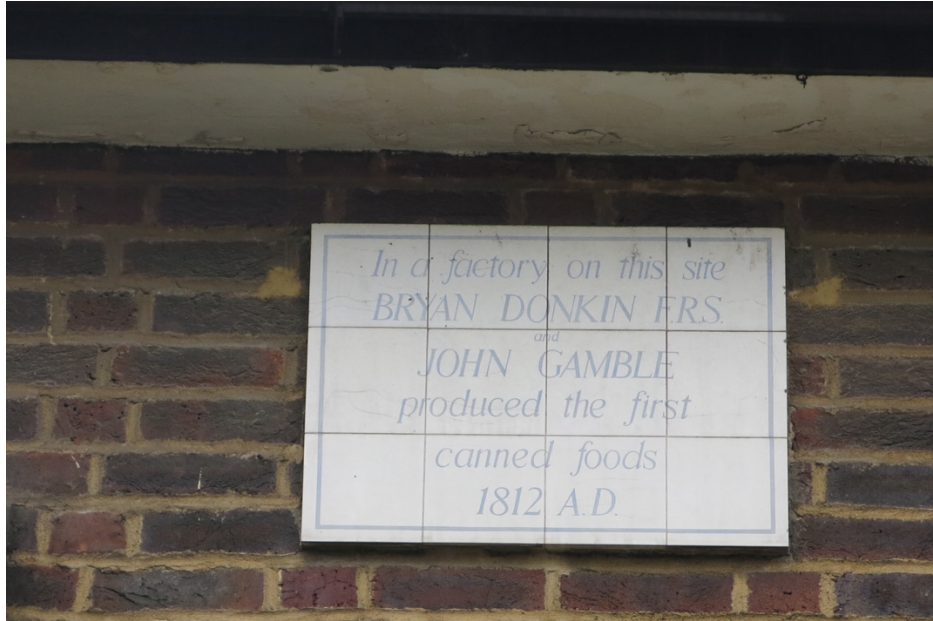 In a factory on this site
BRYAN DONKIN F.R.S.
and
JOHN GAMBLE
produced the first
canned foods
1812 A.D.